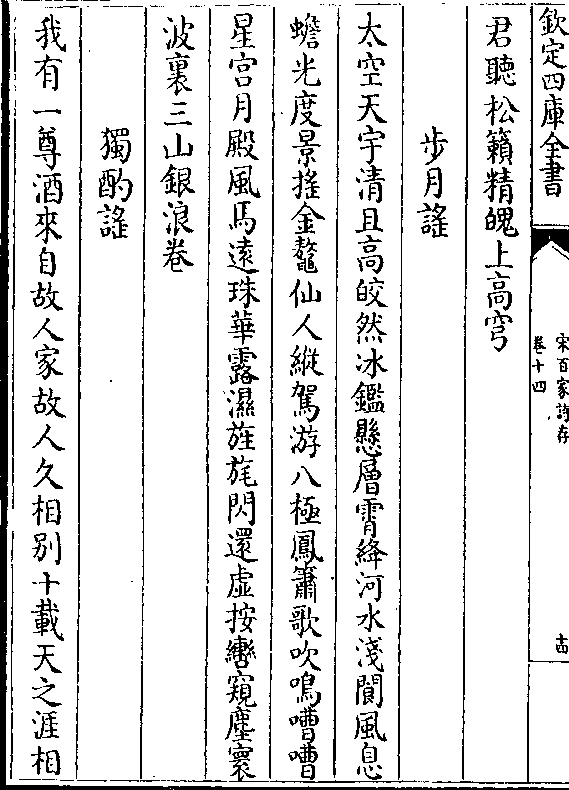 欽定四庫全書
宋百家詩存
卷十四
十四
君聽松籟精魄上高穹
步月謠
太空天宇清且高皎然冰鑑懸層霄絳河水淺閬風息
蟾光度景搖金鼇仙人縱駕游八極鳳簫歌吹鳴嘈嘈
星宮月殿風馬遠珠華露濕旌旄閃還虛按轡窺塵寰
波裏三山銀浪卷
獨酌謠
我有一尊酒來自故人家故人久相別十載天之涯相